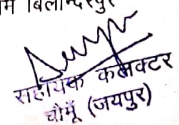 बिलान्दरपुर
सहायक कलक्टर
चौमूं (जयपुर)